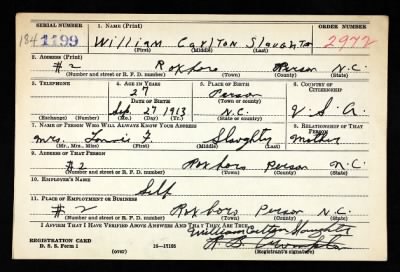 SERIAL NUMBER 1. NAME (Print) ORDER NUMBER
184 1199 William Carlton Slaughter 2972
(First) (Middle) (Last)
2. ADDRESS (Print)
#2 Roxboro Person N.C.
(Number and street or R. F. D. number) (Town) (County) (State)
3. TELEPHONE 4. AGE IN YEARS 5. PLACE OF BIRTH 6. COUNTRY OF CITIZENSHIP
27 Person
DATE OF BIRTH (Town or county)
Sep. 27 1913 N.C. U.S.A.
(Exchange) (Number) (Mo.) (Day) (Yr.) (State or country)
7. NAME OF PERSON WHO WILL ALWAYS KNOW YOUR ADDRESS 8. RELATIONSHIP OF THAT PERSON
Mrs. F. Slaughter Mother
(Mr., Mrs., Miss) (First) (Middle) (Last)
9. ADDRESS OF THAT PERSON
#2 Roxboro Person N.C.
(Number and street or R. F. D. number) (Town) (County) (State)
10. EMPLOYER'S NAME
Self
11. PLACE OF EMPLOYMENT OR BUSINESS
#2 Roxboro Person N.C.
(Number and street or R. F. D. number) (Town) (County) (State)
I AFFIRM THAT I HAVE VERIFIED ABOVE ANSWERS AND THAT THEY ARE TRUE.
William Carlton Slaughter
REGISTRATION CARD
D. S. S. Form 1 (over) 16—17105 (Registrant's signature)